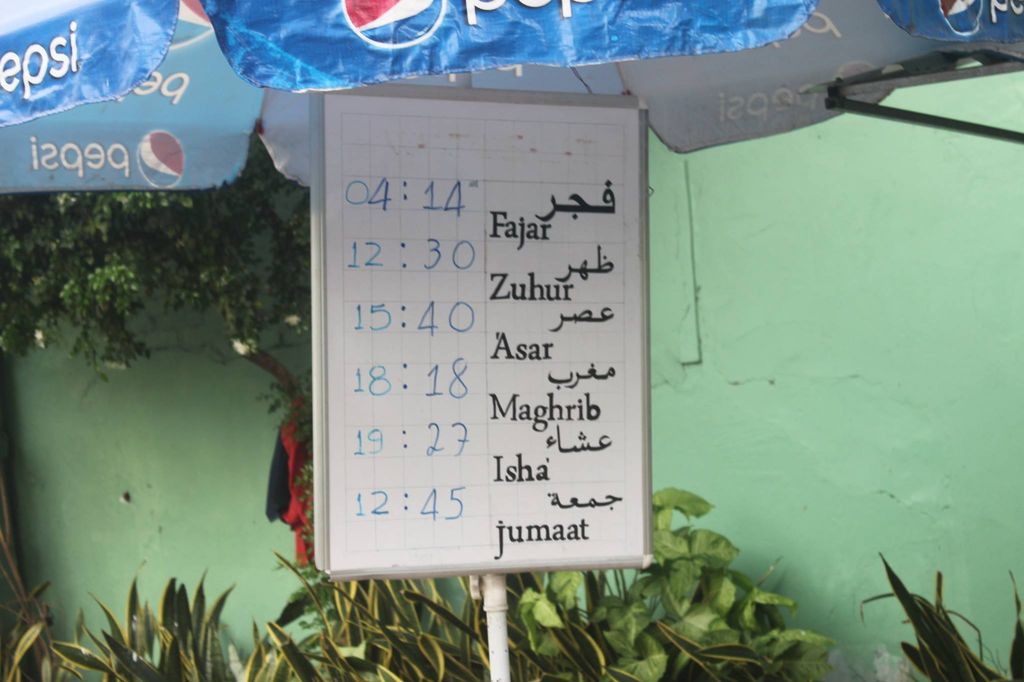 epsi
pepsi
pepsi
pepsi
pepsi
04:14 فجر
Fajar
12:30 ظهر
Zuhur
15:40 عصر
'Asar
18:18 مغرب
Maghrib
19:27 عشاء
Isha'
12:45 جمعة
jumaat